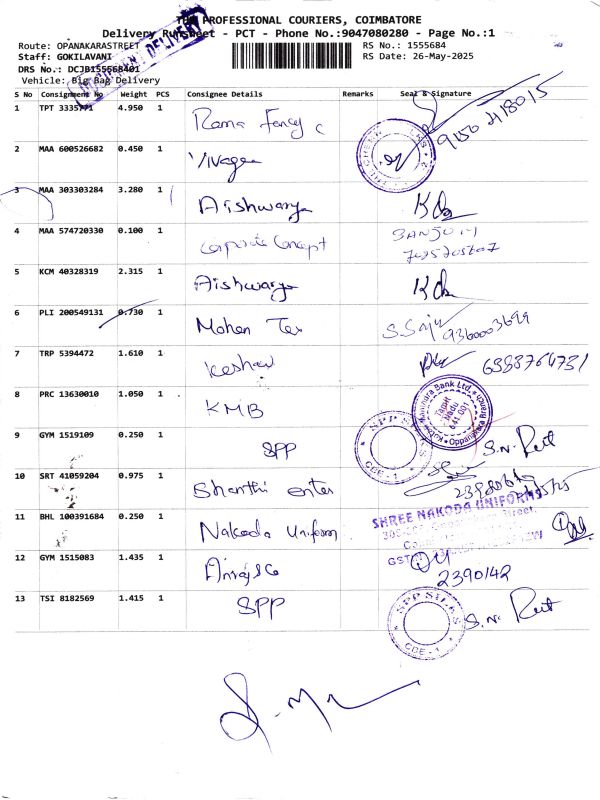 THE PROFESSIONAL COURIERS, COIMBATORE
Delivery Runsheet - PCT - Phone No.:9047080280 - Page No.:1
Route: OPANAKARASTREET RS No.: 1555684
Staff: GOKILAVANI RS Date: 26-May-2025
DRS No.: DCJB155568401
Vehicle: Big Bag Delivery
DELIVERY
S No Consignment No Weight PCS Consignee Details Remarks Seal & Signature
1 TPT 3335771 4.950 1 Rama Fancy c 9150418015
2 MAA 600526682 0.450 1 Vivaga
3 MAA 303303284 3.280 1 Aishwarya
4 MAA 574720330 0.100 1 Corporate Concept
5 KCM 40328319 2.315 1 Aishwarya
6 PLI 200549131 0.730 1 Mohan Tex 9360003699
7 TRP 5394472 1.610 1 Keshav
8 PRC 13630010 1.050 1 KMB
Kotak Mahindra Bank Ltd. Oppanakara Tamil Nadu 641 001
9 GYM 1519109 0.250 1 SPP S.N.
SPP SILKS CBE - 1
10 SRT 41059204 0.975 1 Shanthi enter
11 BHL 100391684 0.250 1 Nakoda Uniform
SHREE NAKODA UNIFORMS
12 GYM 1515083 1.435 1 2390142
13 TSI 8182569 1.415 1 SPP S.N.
SPP SILKS CBE - 1